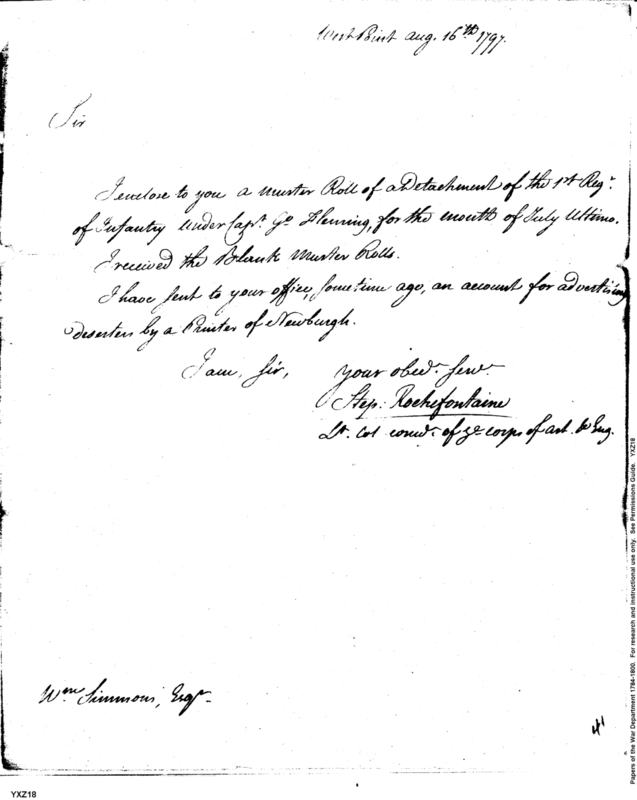 West Point Aug. 16th 1797.
Sir
I enclose to you a Muster Roll of a Detachment of the 1st Regt.
of Infantry under Capt. Go Fleming, for the month of July Ultimo.
I received the Blank Muster Rolls.
I have sent to your office, sometime ago, an account for advertising
deserters by a Printer of Newburgh.
I am, Sir, your obedt. servt.
Step: Rochefontaine
Lt. Col comdt. of ye corps of art. & Eng.
Wm Simmons, Esqr.
41
Papers of the War Department 1784-1800. For research and instructional use only. See Permissions Guide. YXZ18
YXZ18